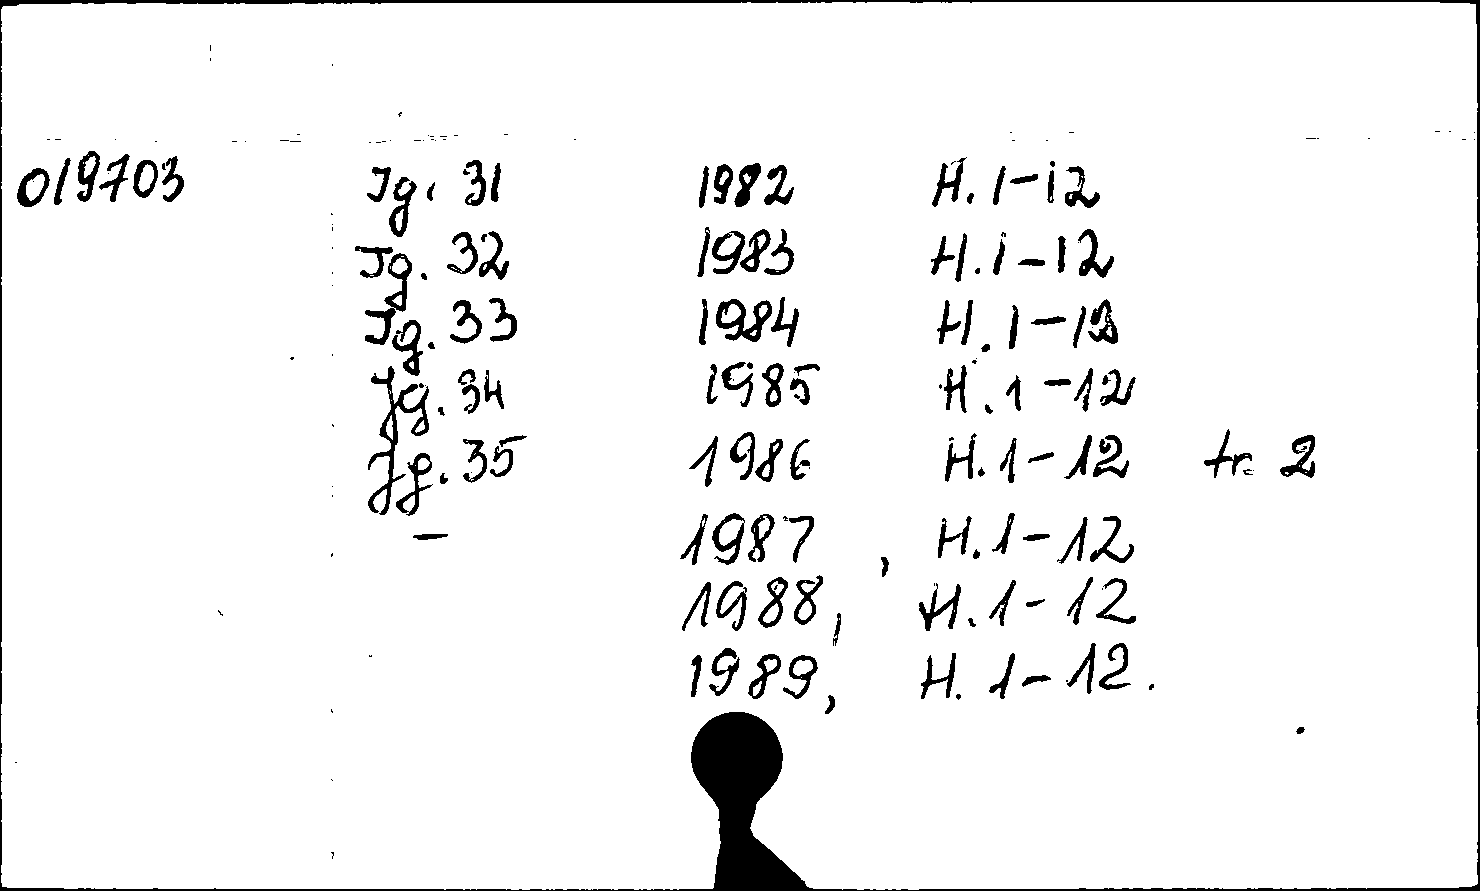 019703 Jg. 31 1982 H. 1-12
Jg. 32 1983 H. 1-12
Jg. 33 1984 H. 1-12
Jg. 34 1985 H. 1-12
Jg. 35 1986 H. 1-12 tr. 2
– 1987, H. 1-12
1988, H. 1-12
1989, H. 1-12.